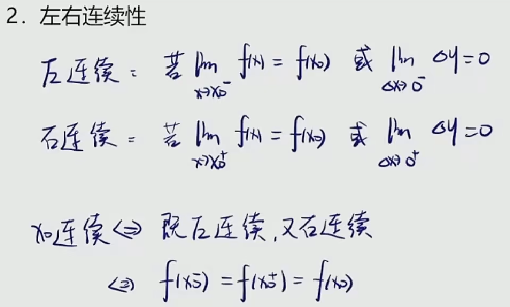 2. 左右连续性
左连续：若 lim_{x→x₀⁻} f(x) = f(x₀) 或 lim_{Δx→0⁻} Δy=0
右连续：若 lim_{x→x₀⁺} f(x) = f(x₀) 或 lim_{Δx→0⁺} Δy=0
x₀连续⇔ 既左连续，又右连续
⇔ f(x₀⁻) = f(x₀⁺) = f(x₀)